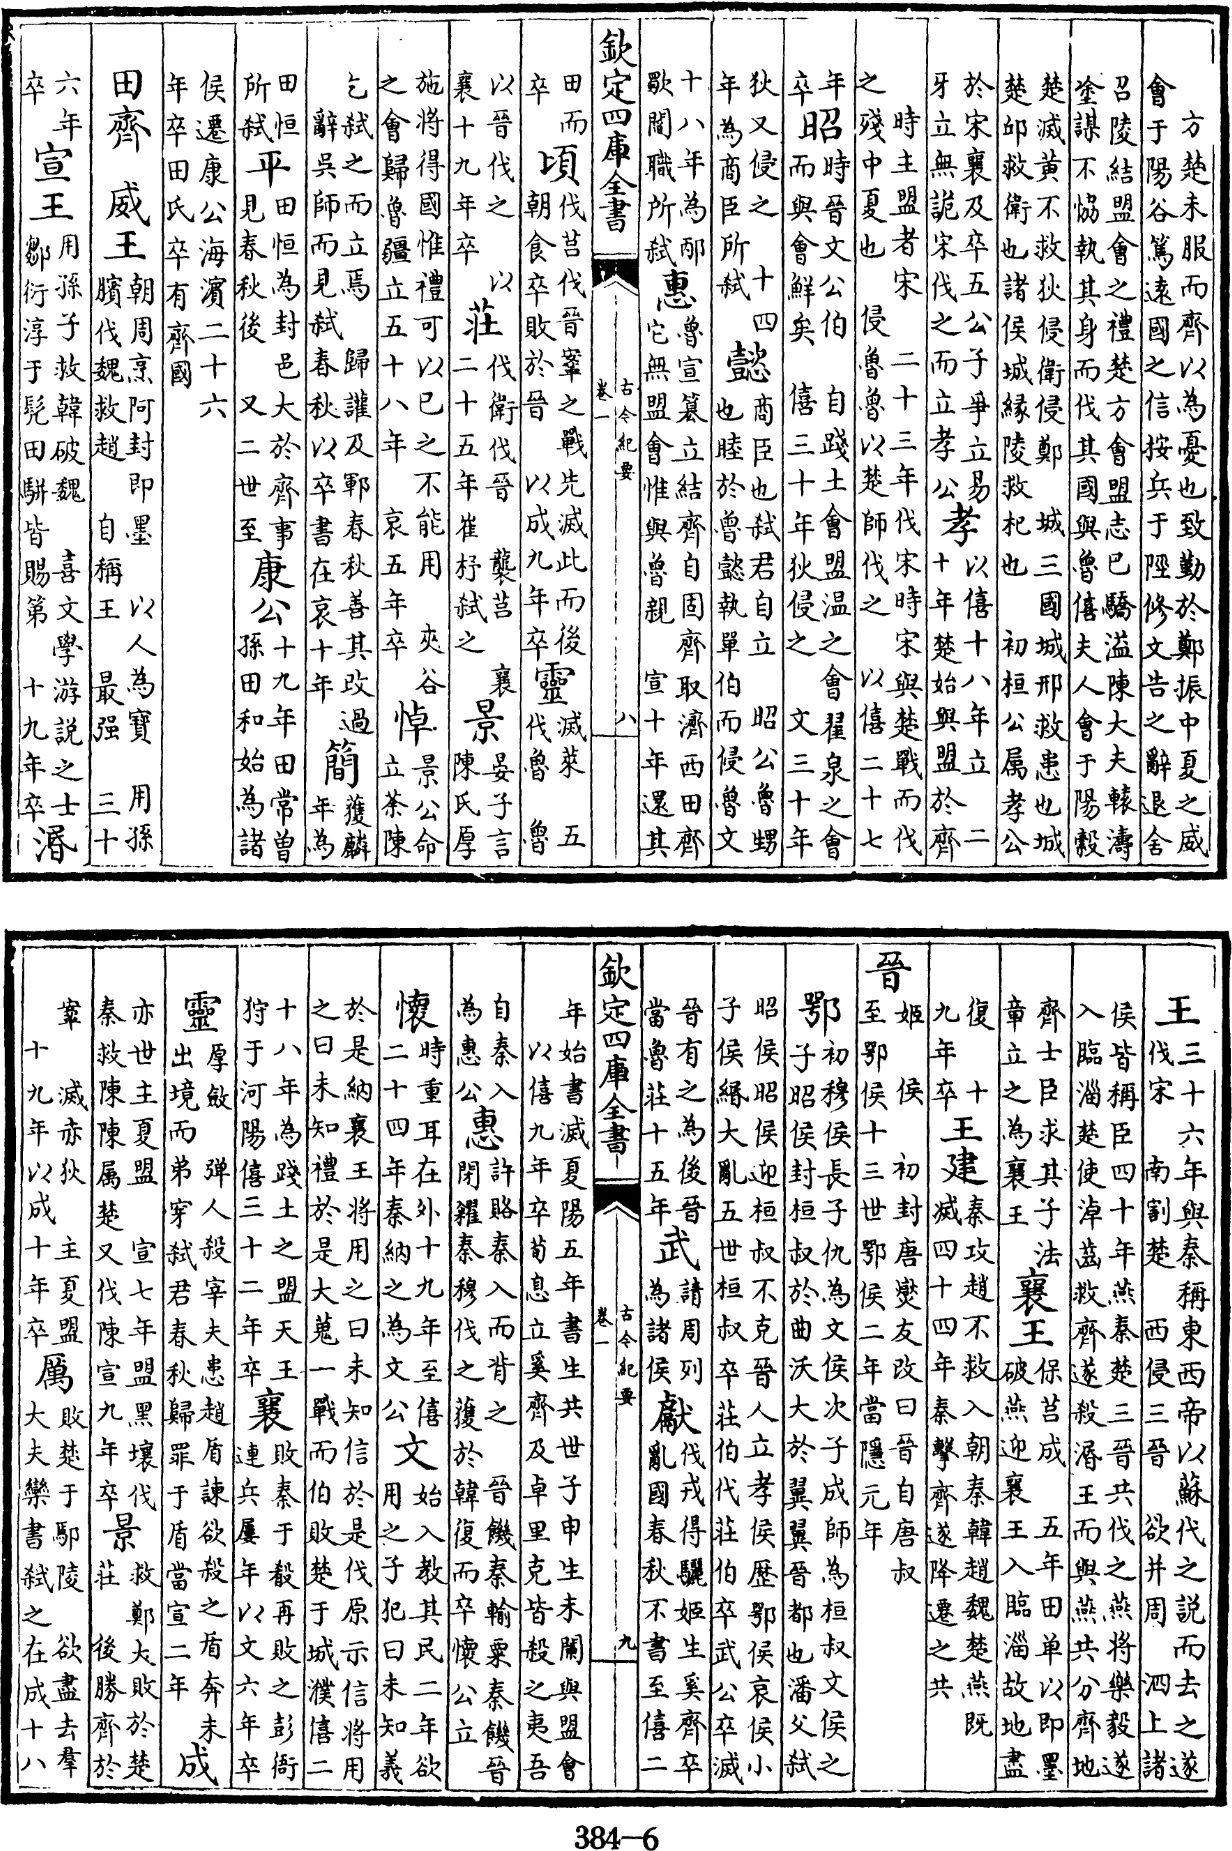 方楚未服而齊以為憂也致勤於鄭振中夏之威
會于陽谷篤遠國之信按兵于陘修文告之辭退舍
召陵結盟會之禮楚方會盟志已驕溢陳大夫轅濤
塗謀不恊執其身而伐其國與魯僖夫人會于陽穀
楚滅黄不救狄侵衛侵鄭 城三國城邢救患也城
楚邱救衛也諸侯城緣陵救杞也 初桓公属孝公
於宋襄及卒五公子爭立易
牙立無詭宋伐之而立孝公
孝
以僖十八年立 二
十年楚始與盟於齊
時主盟者宋 二十三年伐宋時宋與楚戰而伐
之殘中夏也 侵魯魯以楚師伐之 以僖二十七
年
卒
昭
時晉文公伯 自踐土會盟温之會翟泉之會
而與會鮮矣 僖三十年狄侵之 文三十年
狄又侵之 十四
年為商臣所弑
懿
商臣也弑君自立 昭公魯甥
也睦於魯懿執單伯而侵魯文
十八年為邴
歜閻職所弑
惠
魯宣簒立結齊自固齊取濟西田齊
它無盟會惟與魯親 宣十年還其
欽定四庫全書
古今紀要
卷一
八
田而
卒
頃
伐莒伐晉鞌之戰先滅此而後
朝食卒敗於晉 以成九年卒
靈
滅萊 五
伐魯 魯
以晉伐之 以
襄十九年卒
莊
伐衛伐晉 襲莒 襄
二十五年崔杼弑之
景
晏子言
陳氏厚
施將得國惟禮可以已之不能用 夾谷
之會歸魯疆立五十八年 哀五年卒
悼
景公命
立荼陳
乞弑之而立焉 歸讙及鄆春秋善其改過
辭吳師而見弑春秋以卒書在哀十年
簡
獲麟
年為
田恒
所弑
平
田恒為封邑大於齊事
見春秋後 又二世至
康公
十九年田常曾
孫田和始為諸
侯遷康公海濱二十六
年卒田氏卒有齊國
田齊 威王
朝周烹阿封即墨 以人為寳 用孫
臏伐魏救趙 自稱王 最强 三十
六年
卒
宣王
用孫子救韓破魏 喜文學游説之士
鄒衍淳于髠田駢皆賜第 十九年卒
湣
王
三十六年與秦稱東西帝以蘇代之説而去之遂
伐宋 南割楚 西侵三晉 欲并周 泗上諸
侯皆稱臣四十年燕秦楚三晉共伐之燕將樂毅遂
入臨淄楚使淖齒救齊遂殺湣王而與燕共分齊地
齊士臣求其子法
章立之為襄王
襄王
保莒成 五年田單以即墨
破燕迎襄王入臨淄故地盡
復 十
九年卒
王建
秦攻趙不救入朝秦韓趙魏楚燕既
滅四十四年秦擊齊遂降遷之共
晉
姬 侯 初封唐燮友改曰晉自唐叔
至鄂侯十三世鄂侯二年當隱元年
鄂
初穆侯長子仇為文侯次子成師為桓叔文侯之
子昭侯封桓叔於曲沃大於翼翼晉都也潘父弑
昭侯昭侯迎桓叔不克晉人立孝侯歴鄂侯哀侯小
子侯緡大亂五世桓叔卒莊伯代莊伯卒武公卒滅
晉有之為後晉
當魯莊十五年
武
請周列
為諸侯
獻
伐戎得驪姬生奚齊卒
亂國春秋不書至僖二
欽定四庫全書
古今紀要
卷一
九
年始書滅夏陽五年書生共世子申生未闗與盟會
以僖九年卒荀息立奚齊及卓里克皆殺之夷吾
自秦入
為惠公
惠
許賂秦入而背之 晉饑秦輸粟秦饑晉
閉糴秦穆伐之獲於韓復而卒懷公立
懷
時重耳在外十九年至僖
二十四年秦納之為文公
文
始入教其民二年欲
用之子犯曰未知義
於是納襄王將用之曰未知信於是伐原示信將用
之曰未知禮於是大蒐一戰而伯敗楚于城濮僖二
十八年為踐土之盟天王
狩于河陽僖三十二年卒
襄
敗秦于殽再敗之彭衙
連兵屢年以文六年卒
靈
厚斂 弹人殺宰夫患趙盾諫欲殺之盾奔未
出境而弟穿弑君春秋歸罪于盾當宣二年
成
亦世主夏盟 宣七年盟黑壤伐
秦救陳陳属楚又伐陳宣九年卒
景
救鄭大敗於楚
莊 後勝齊於
鞌 滅赤狄 主夏盟
十九年以成十年卒
厲
敗楚于鄢陵 欲盡去羣
大夫欒書弑之在成十八
384—6